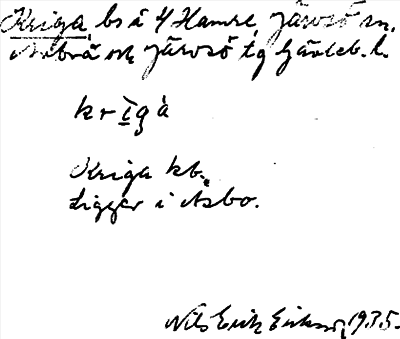 Kriga, bs å 4 Hamre, Järvsö sn.
Arbrå och Järvsö tg Gävleb. l.
krīgà
Kriga kb.
Ligger i Åsbo.
Nils Erik Eriksson, 1935.